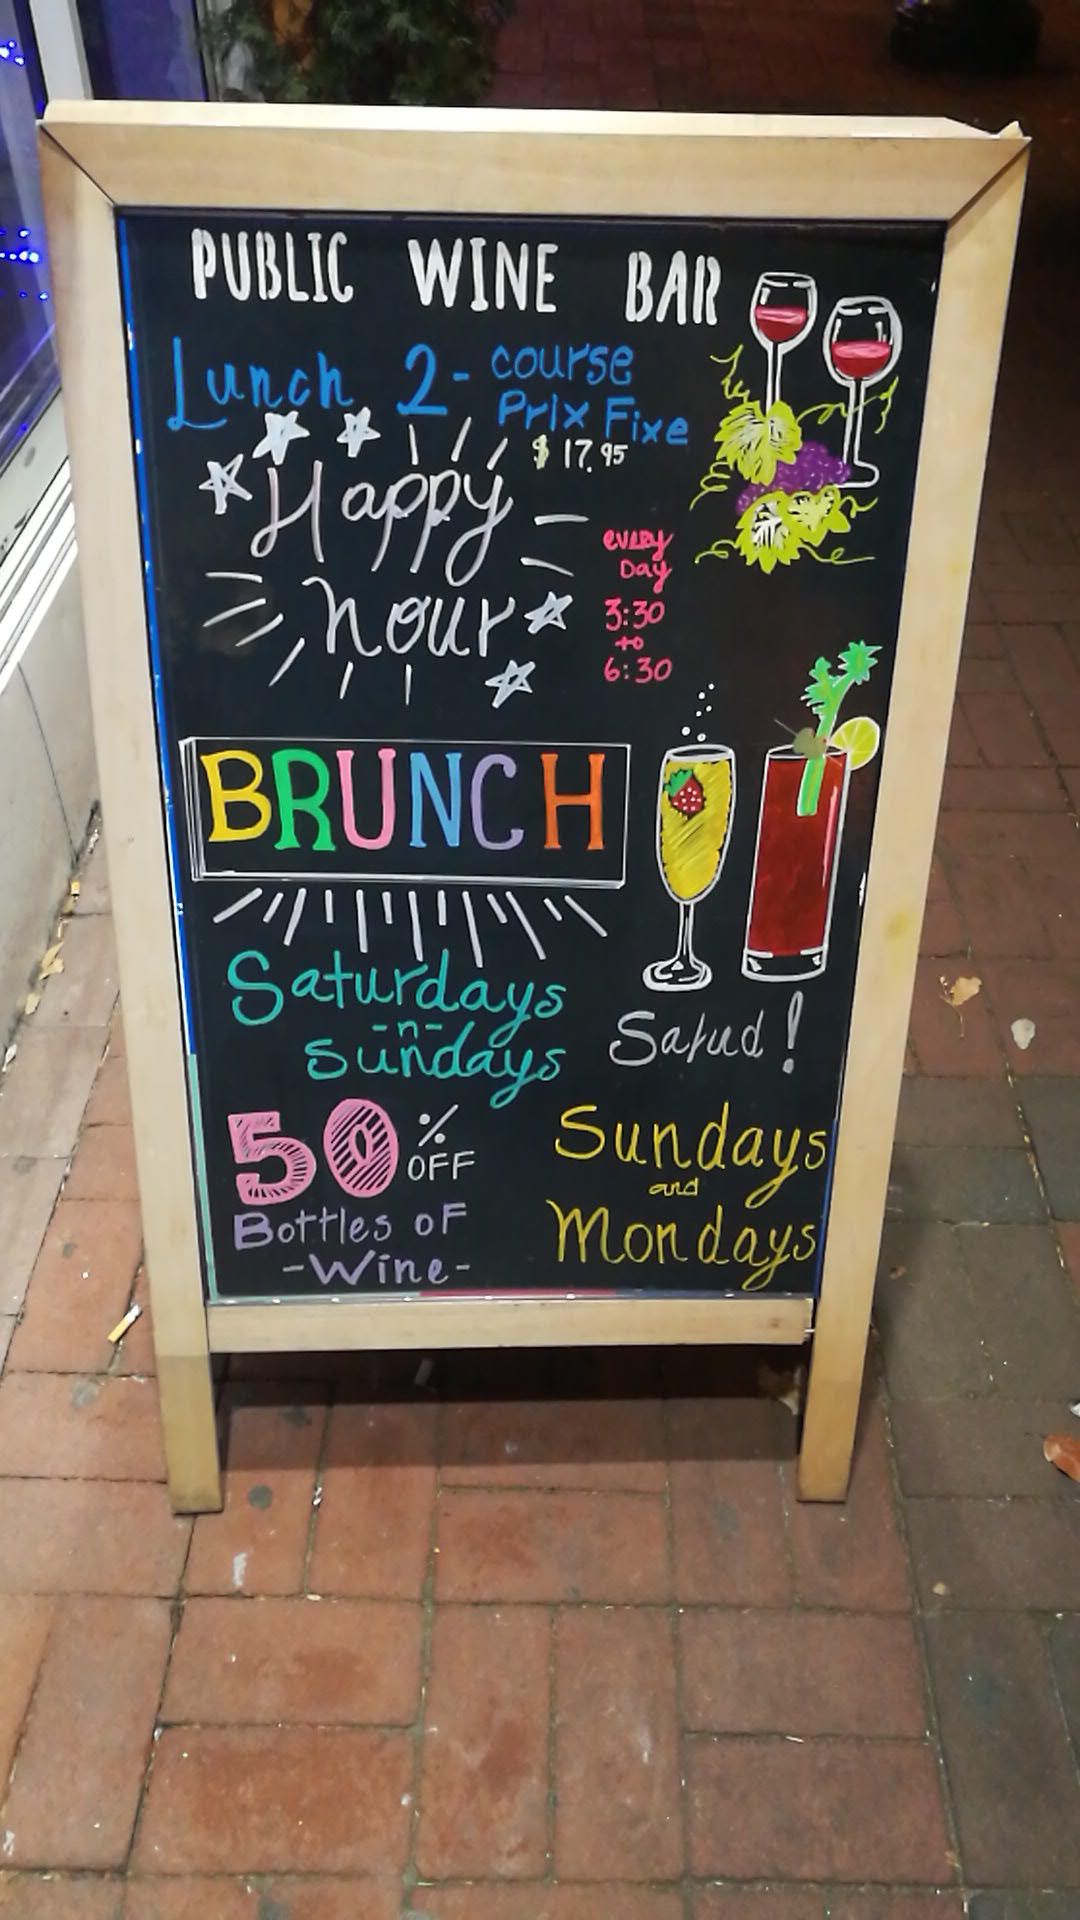 PUBLIC WINE BAR
Lunch 2-course
Prix Fixe
$17.95
Happy
hour
every
Day
3:30
to
6:30
BRUNCH
Saturdays
-n-
Sundays
Salud!
50% OFF
Bottles of
-Wine-
Sundays
and
Mondays